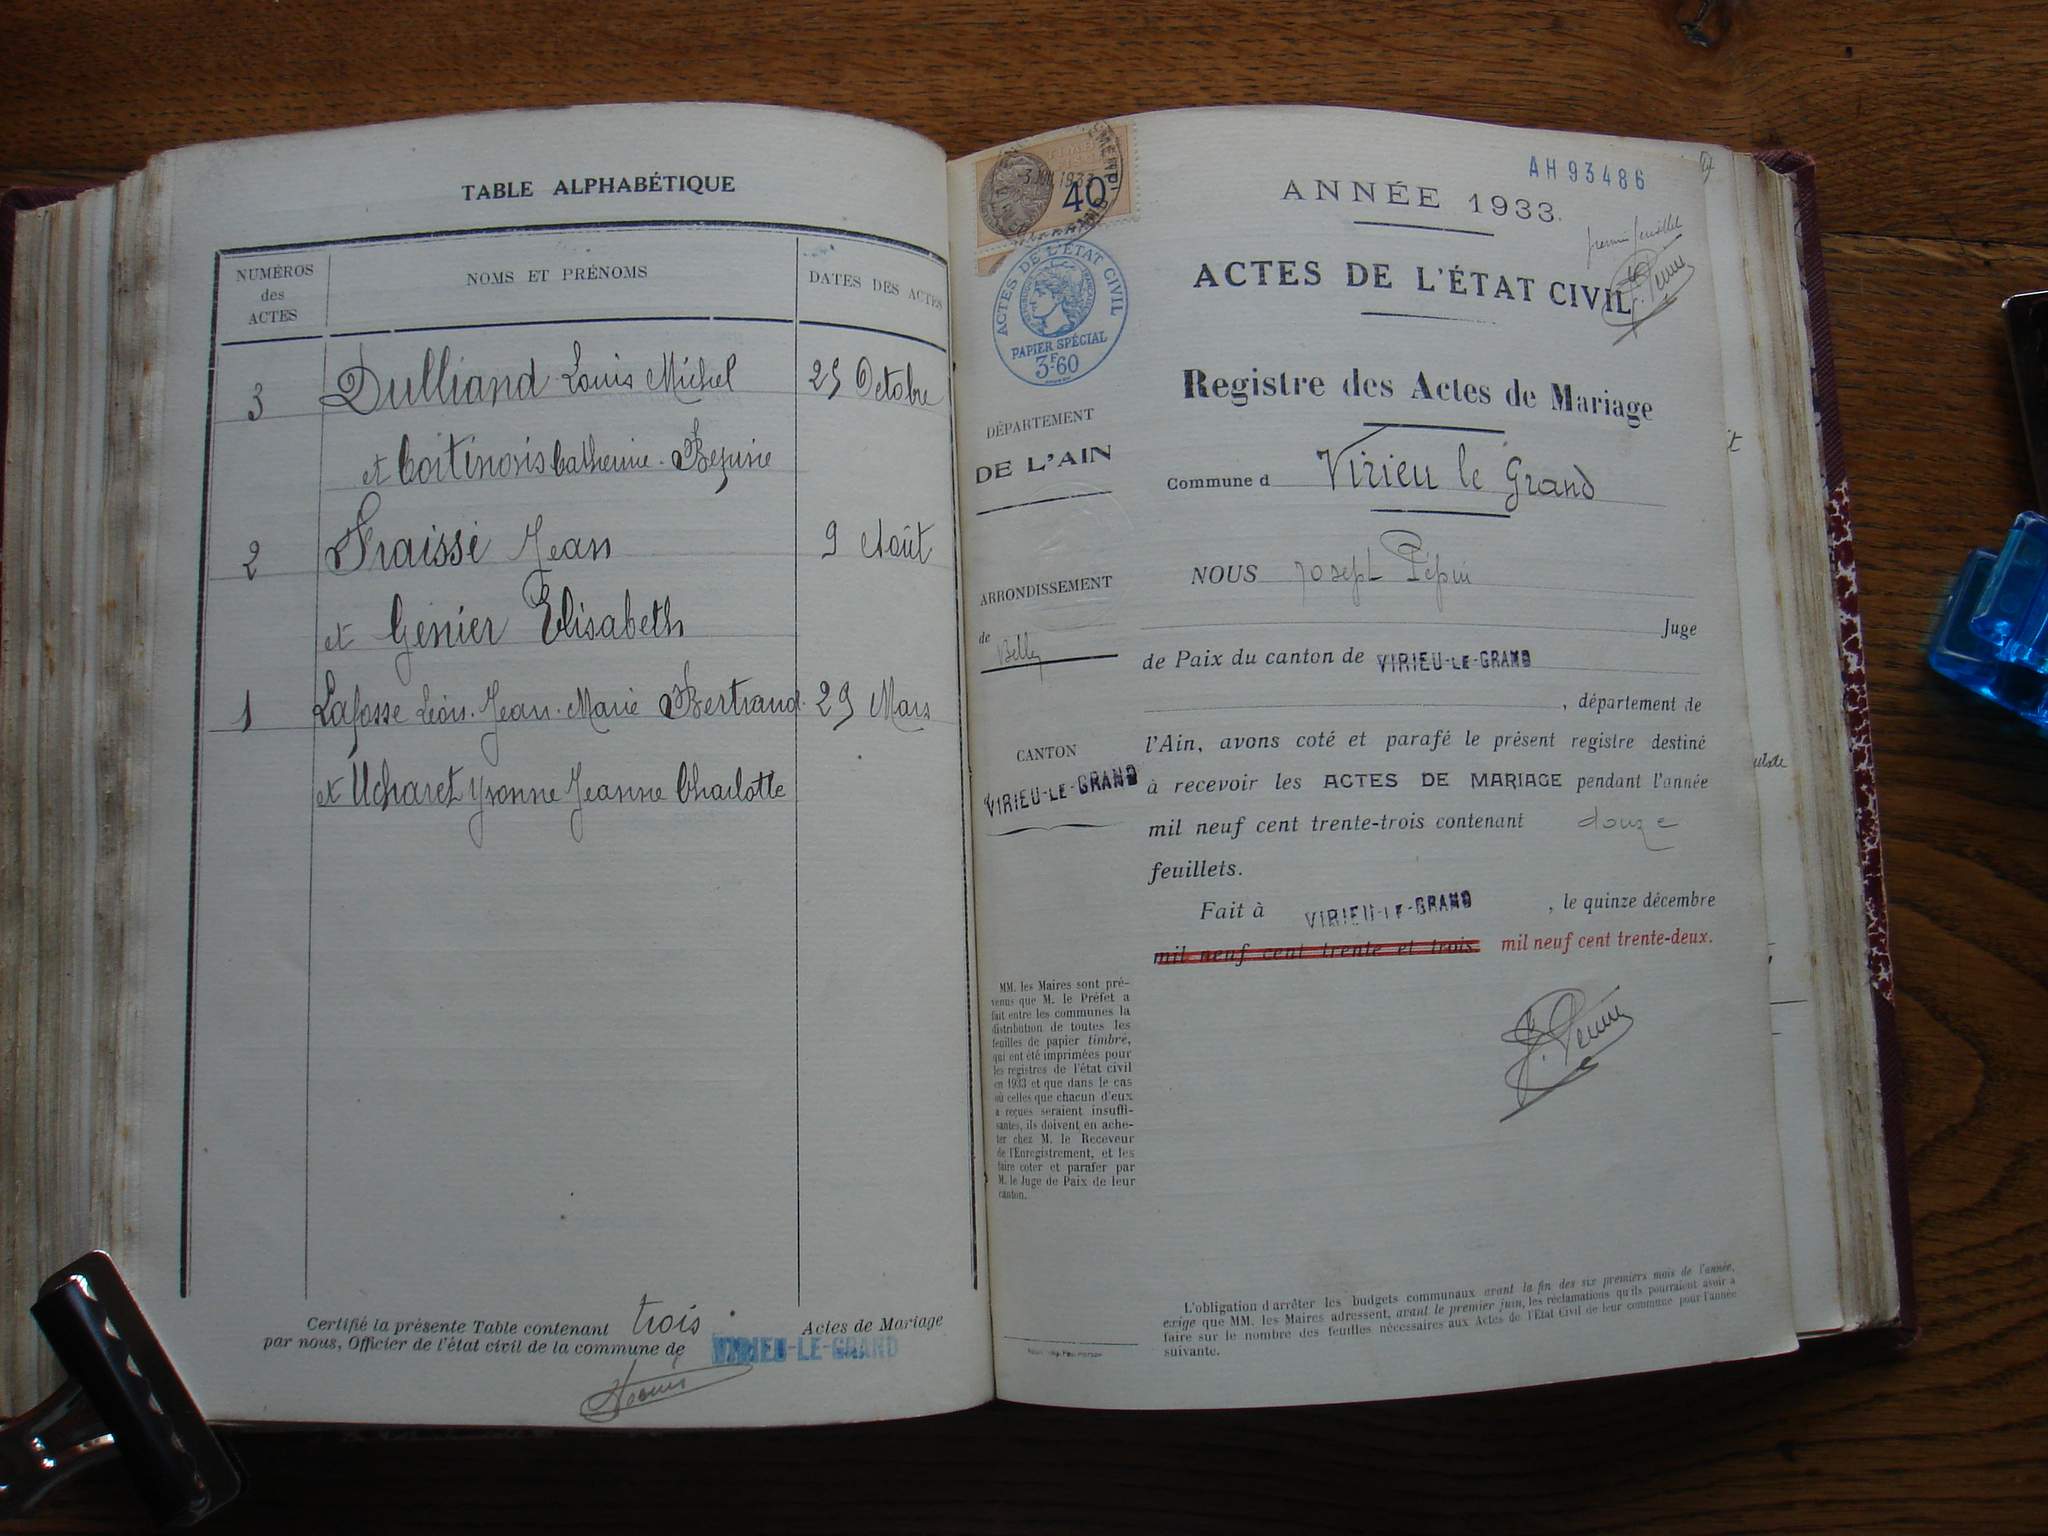 TABLE ALPHABÉTIQUE
NUMÉROS
des
ACTES
NOMS ET PRÉNOMS
DATES DES ACTES
3 Dulliand Louis Michel 25 Octobre
et Catherine
2 Fraisse Jean 9 Août
et Genier Elisabeth
1 Lafosse Léon Jean Marie Bertrand 29 Mars
et Ucharet Yvonne Jeanne Charlotte
Certifié la présente Table contenant trois Actes de Mariage
par nous, Officier de l'état civil de la commune de VIRIEU-LE-GRAND
40
ACTES DE L'ÉTAT CIVIL
PAPIER SPÉCIAL
3F60
AH 93486
ANNÉE 1933.
premier feuillet
ACTES DE L'ÉTAT CIVIL
Registre des Actes de Mariage
Commune d Virieu le Grand
DÉPARTEMENT
DE L'AIN
ARRONDISSEMENT
de Belley
CANTON
VIRIEU-LE-GRAND
NOUS Joseph Pépin
Juge
de Paix du canton de VIRIEU-LE-GRAND
, département de
l'Ain, avons coté et parafé le présent registre destiné
à recevoir les ACTES DE MARIAGE pendant l'année
mil neuf cent trente-trois contenant douze
feuillets.
Fait à VIRIEU-LE-GRAND , le quinze décembre
mil neuf cent trente et trois mil neuf cent trente-deux.
MM. les Maires sont pré-
venus que M. le Préfet a
fait entre les communes la
distribution de toutes les
feuilles de papier timbré,
qui ont été imprimées pour
les registres de l'état civil
en 1933 et que dans le cas
où celles que chacun d'eux
a reçues seraient insuffi-
santes, ils doivent en ache-
ter chez M. le Receveur
de l'Enregistrement, et les
faire coter et parafer par
M. le Juge de Paix de leur
canton.
L'obligation d'arrêter les budgets communaux avant la fin des six premiers mois de l'année,
exige que MM. les Maires adressent, avant le premier juin, les réclamations qu'ils pourraient avoir à
faire sur le nombre des feuilles nécessaires aux Actes de l'État Civil de leur commune pour l'année
suivante.